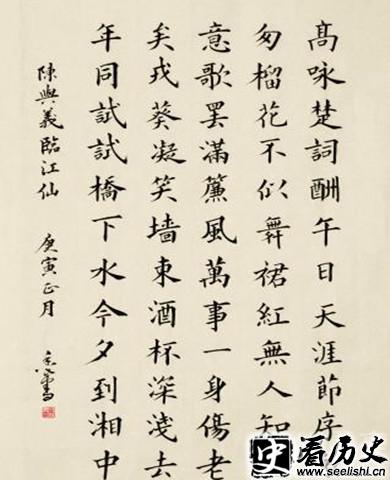 髙詠楚詞酬午日天涯節序
匆榴花不似舞裙紅無人知
意歌罷滿簾風萬事一身傷老
矣戎葵凝笑墻東酒杯深淺去
年同試試橋下水今夕到湘中
陳與義臨江仙 庚寅正月
史 看历史
www.seelishi.com